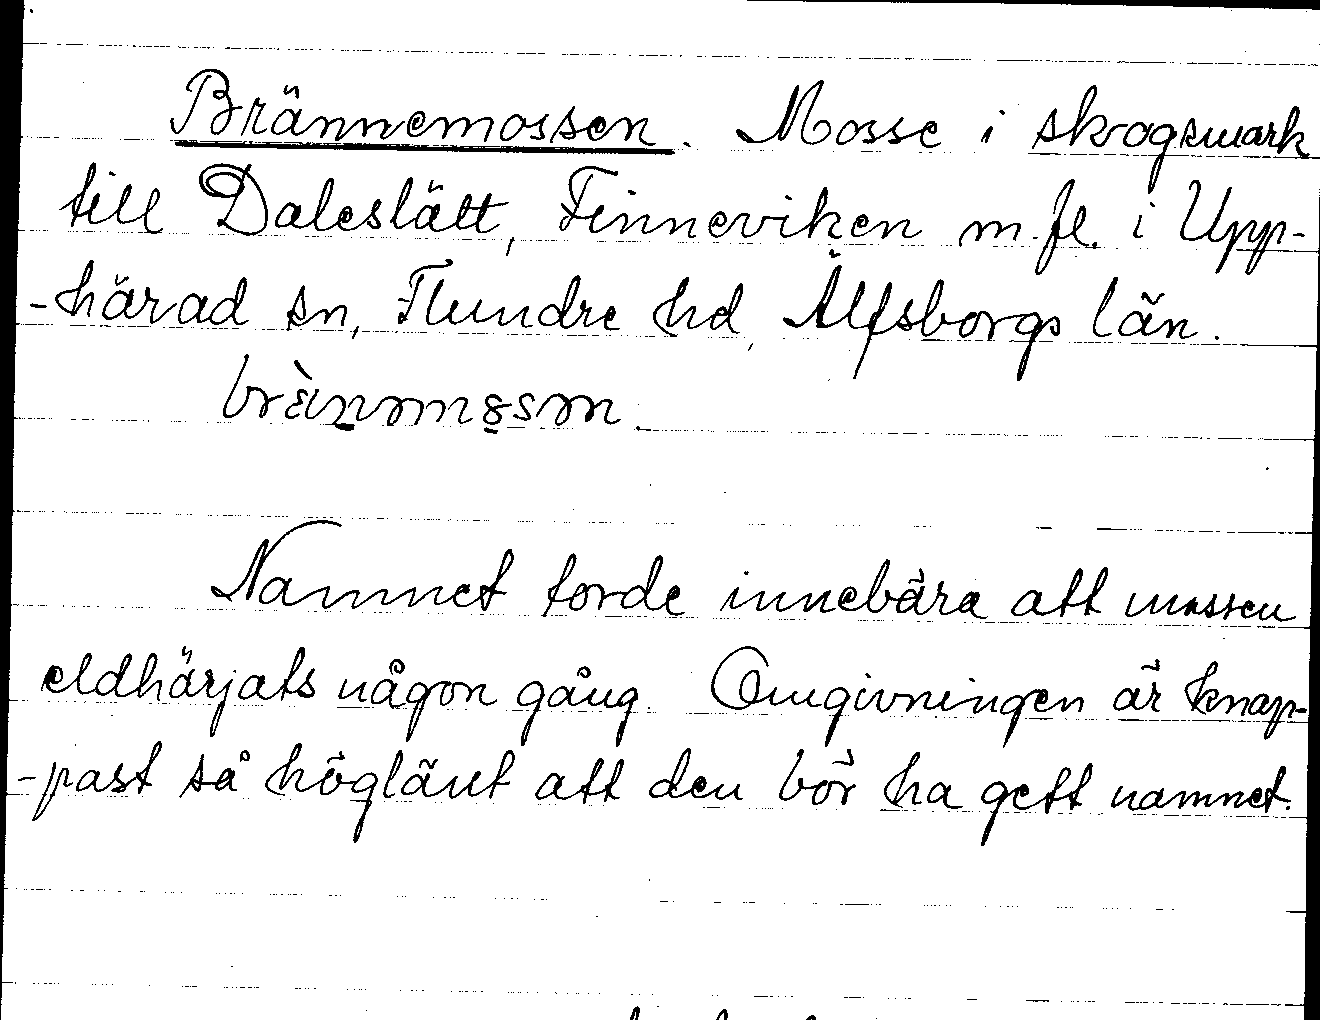 Brännemossen. Mosse i skogsmark
till Daleslätt, Finneviken m.fl. i Upp-
-härad sn, Flundre hd, Älfsborgs län.
Namnet torde innebära att mossen
eldhärjats någon gång. Omgivningen är knap-
-past så höglänt att den bör ha gett namnet.